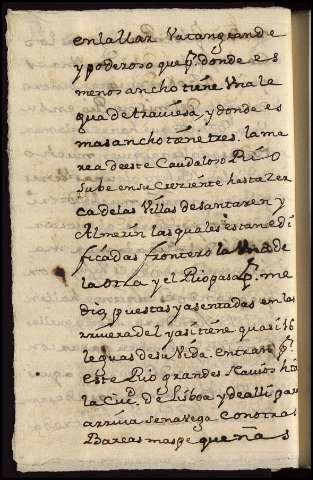 enlallar Va tan grande
y poderoso que p.r donde es
menos ancho tiene Vna le
gua de trauiesa, y donde es
mas ancho tiene tres. la ma
rea de este Caudaloso Rio
sube en su Corriente hasta zer
ca de las Villas de santaren y
Almerin las quales estan edi
ficadas frontero la Vna de
la otra y el Rio pasa p.r me
dio, puestas y asentadas en las
rriueras del y asi tiene quasi 16
leguas de su Vida. entran p.r
este Rio grandes Nauios h.ta
la Ciu.d de Lisboa y de alli para
arriua se nauega Con otras
Barcas mas pequeñas